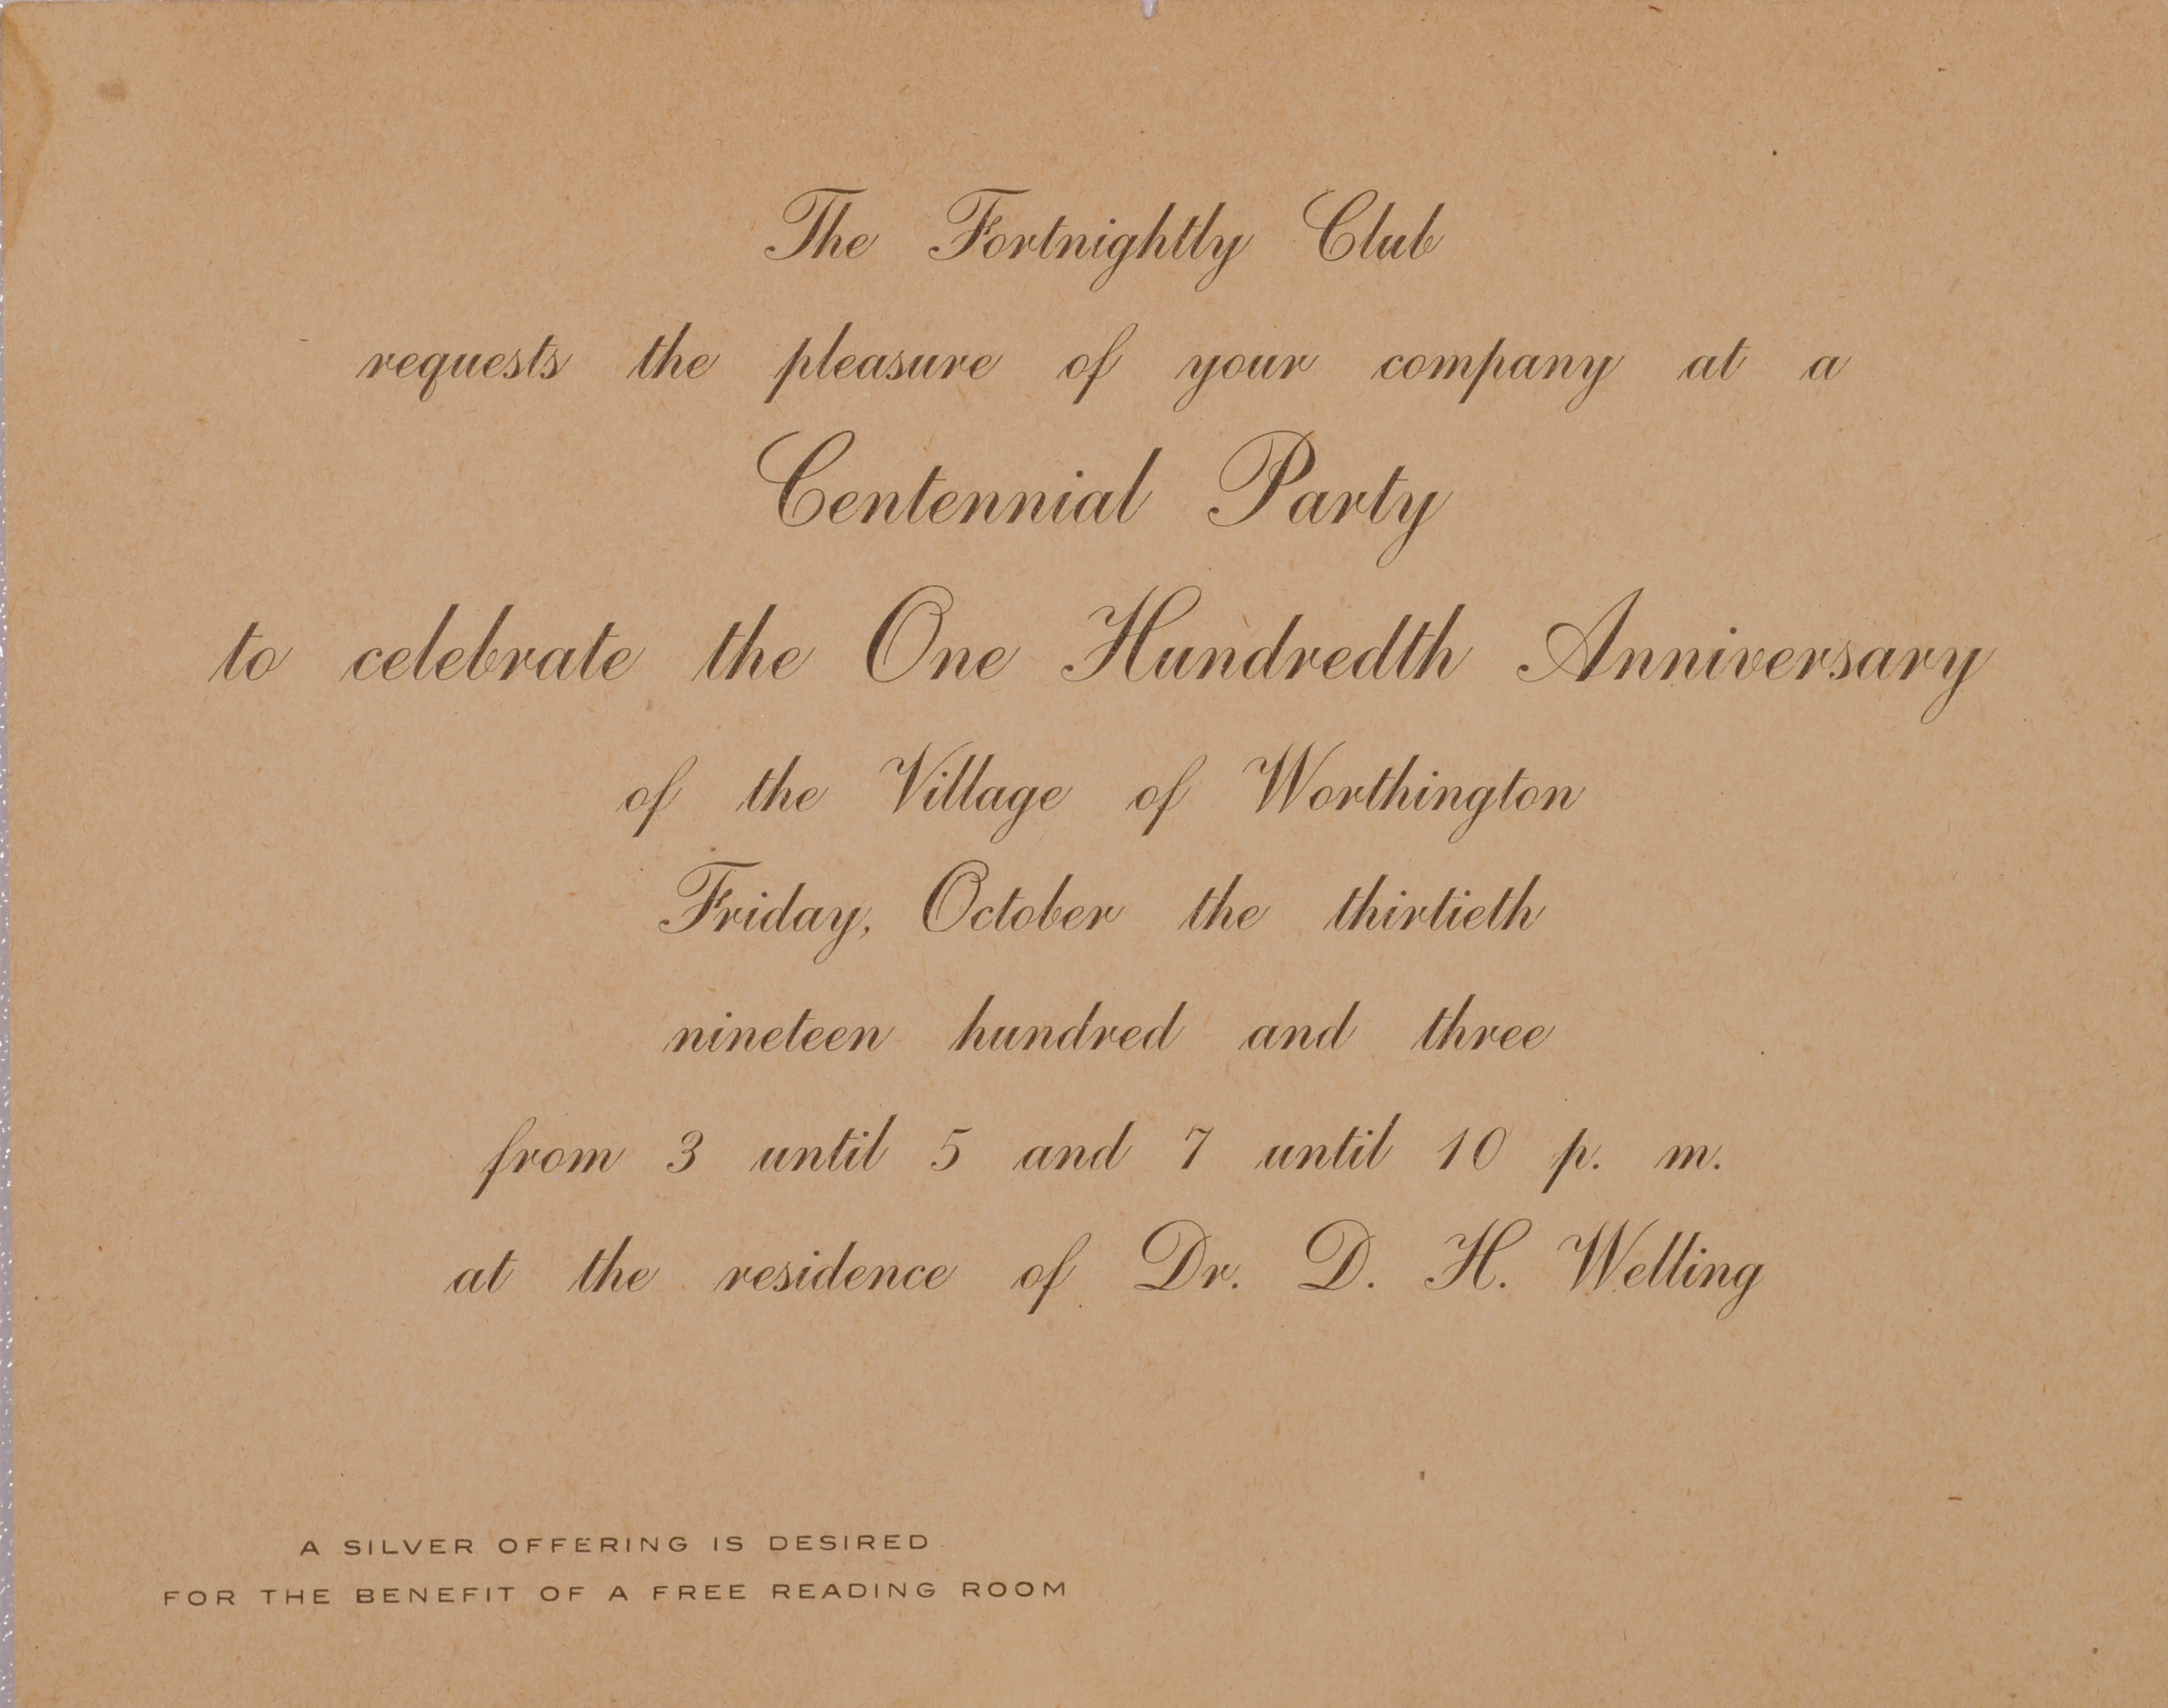 The Fortnightly Club
requests the pleasure of your company at a
Centennial Party
to celebrate the One Hundredth Anniversary
of the Village of Worthington
Friday, October the thirtieth
nineteen hundred and three
from 3 until 5 and 7 until 10 p. m.
at the residence of Dr. D. H. Welling
A SILVER OFFERING IS DESIRED
FOR THE BENEFIT OF A FREE READING ROOM